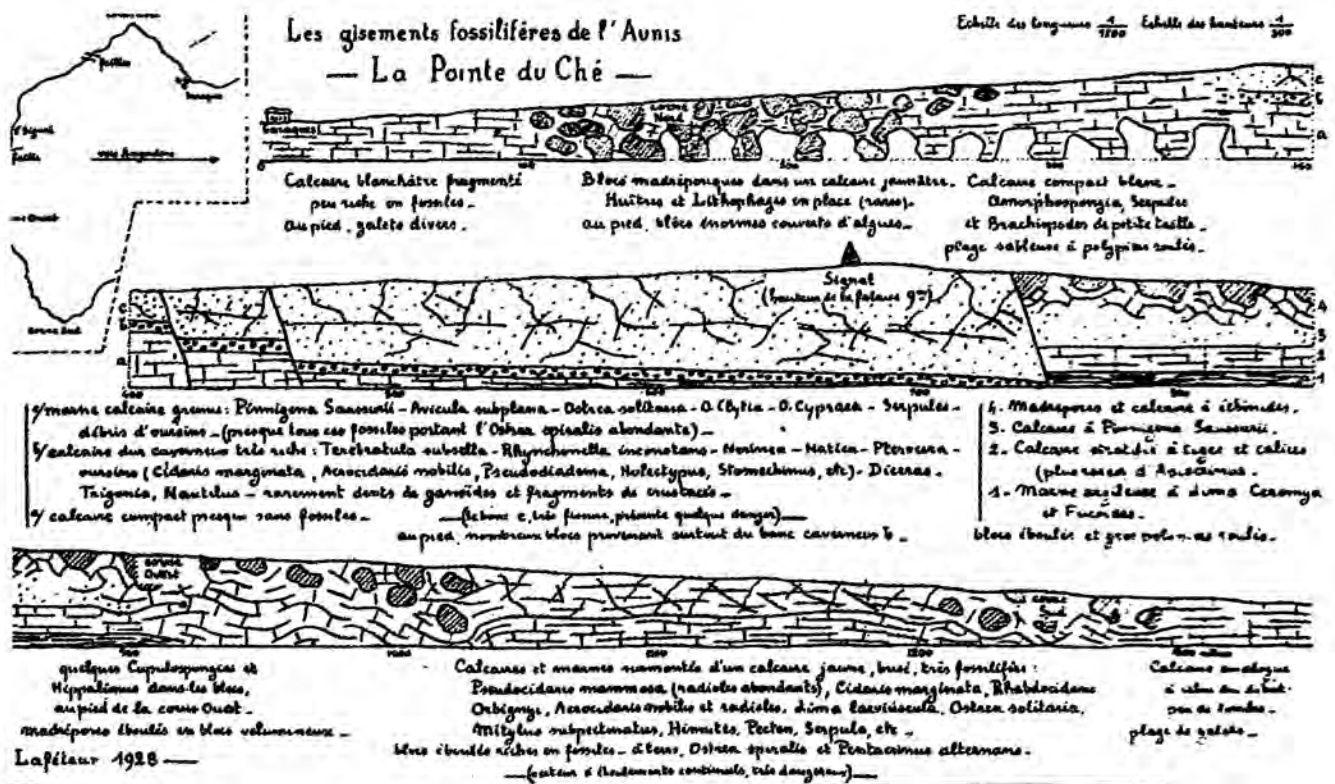 Les gisements fossilifères de l'Aunis
— La Pointe du Ché —
Echelle des longueurs 1/1500 Echelle des hauteurs 1/300
corne Nord
Calcaire blanchâtre fragmenté
peu riche en fossiles.
au pied, galets divers.
Blocs madréporiques dans un calcaire jaunâtre.
Huîtres et Lithophages en place (rares).
au pied, blocs énormes couverts d'algues.
Calcaire compact blanc.
Amorphospongia, Serpules
et Brachiopodes de petite taille.
plage sableuse à polypiers roulés.
Signal
(hauteur de la falaise 9m)
c/ marne calcaire grenue: Pinnigena Saussurii - Avicula subplana - Ostrea solitaria - O. Bytia - O. Cypraea - Serpules -
débris d'oursins - (presque tous ces fossiles portant l'Ostrea spiralis abondants) -
b/ calcaire dur caverneux très riche: Terebratula subsella - Rhynchonella inconstans - Nerinea - Natica - Pterocera -
oursins (Cidaris marginata, Acrocidaris nobilis, Pseudodiadema, Holectypus, Stomechinus, etc) - Diceras -
Trigonia, Nautilus - rarement dents de ganoïdes et fragments de crustacés -
a/ calcaire compact presque sans fossiles -
(le banc c, très fissuré, présente quelque danger)
au pied, nombreux blocs provenant surtout du banc caverneux b -
4. Madrépores et calcaire à échinides.
3. Calcaire à Pinnigena Saussurii.
2. Calcaire stratifié à tiges et calices
d'Apiocrinus.
1. Marne argileuse à Lima Ceromya
et Fucoïdes.
blocs éboulés et gros roulés.
corne Ouest
corne Sud
quelques Cupulospongies et
Hippalimus dans les blocs,
au pied de la corne Ouest -
madrépores éboulés en blocs volumineux -
Calcaires et marnes surmontés d'un calcaire jaune, brisé, très fossilifère:
Pseudocidaris mammosa (radioles abondants), Cidaris marginata, Rhabdocidaris
Orbignyi, Acrocidaris nobilis et radioles, Lima laeviuscula, Ostrea solitaria,
Mitylus subpectinatus, Hinnites, Pecten, Serpula, etc -
blocs éboulés riches en fossiles - à terre, Ostrea spiralis et Pentacrinus alternans.
(secteur à éboulements continuels, très dangereux)
Calcaire analogue
à celui du début.
peu de fossiles.
plage de galets.
Laféteur 1928